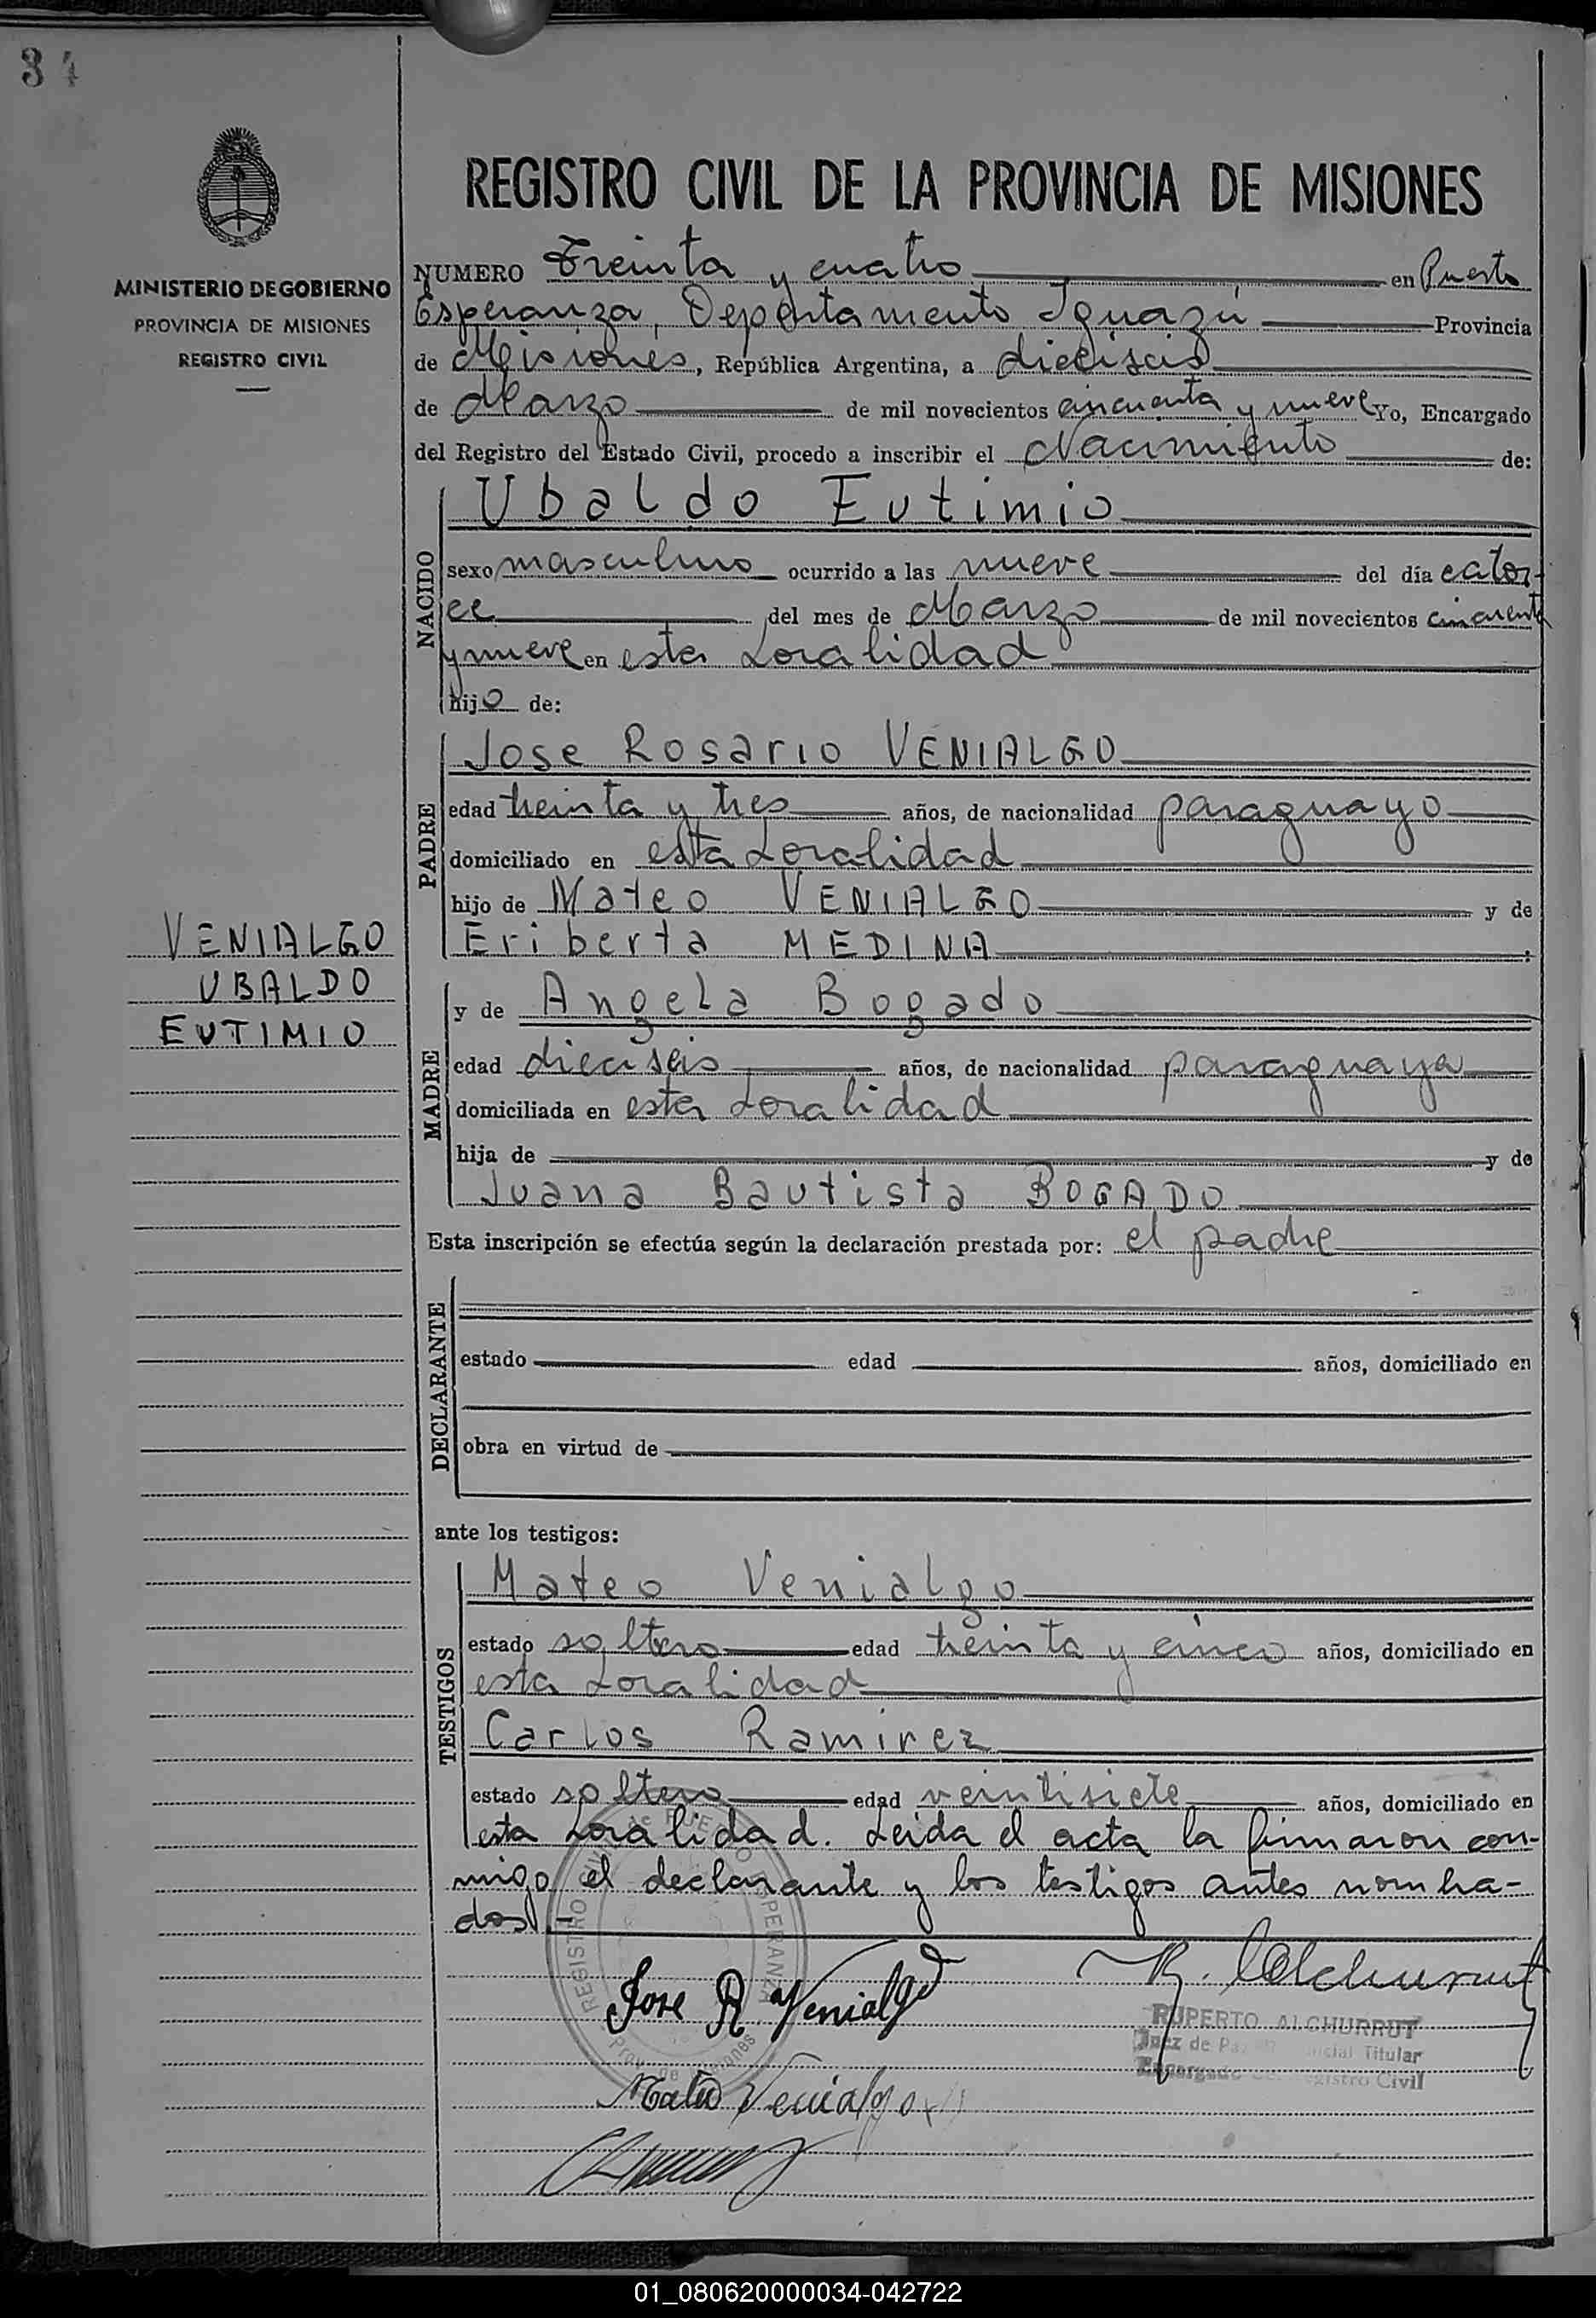 34
MINISTERIO DE GOBIERNO
PROVINCIA DE MISIONES
REGISTRO CIVIL
REGISTRO CIVIL DE LA PROVINCIA DE MISIONES
NUMERO Treinta y cuatro en Puerto
Esperanza, Departamento Iguazú Provincia
de Misiones, República Argentina, a dieciseis
de Marzo de mil novecientos cincuenta y nueve Yo, Encargado
del Registro del Estado Civil, procedo a inscribir el Nacimiento de:
NACIDO
Ubaldo Eutimio
sexo masculino ocurrido a las nueve del día cator-
ce del mes de Marzo de mil novecientos cincuenta
y nueve en esta Localidad
hijo de:
PADRE
Jose Rosario VENIALGO
edad treinta y tres años, de nacionalidad paraguayo
domiciliado en esta Localidad
hijo de Mateo VENIALGO y de
Eriberta MEDINA ;
VENIALGO
UBALDO
EUTIMIO
MADRE
y de Angela Bogado
edad dieciseis años, de nacionalidad paraguaya
domiciliada en esta Localidad
hija de y de
Juana Bautista BOGADO
Esta inscripción se efectúa según la declaración prestada por: el padre
DECLARANTE
estado edad años, domiciliado en
obra en virtud de
ante los testigos:
TESTIGOS
Mateo Venialgo
estado soltero edad treinta y cinco años, domiciliado en
esta Localidad
Carlos Ramirez
estado soltero edad veintisiete años, domiciliado en
esta Localidad. Leida el acta la firmaron con-
migo el declarante y los testigos antes nombra-
dos.-
REGISTRO CIVIL de PUERTO ESPERANZA
Prov. de Misiones
Jose R. Venialgo
R. Alchurrut
RUPERTO ALCHURRUT
Juez de Paz Titular
Encargado Registro Civil
Mateo Venialgo
01_080620000034-042722